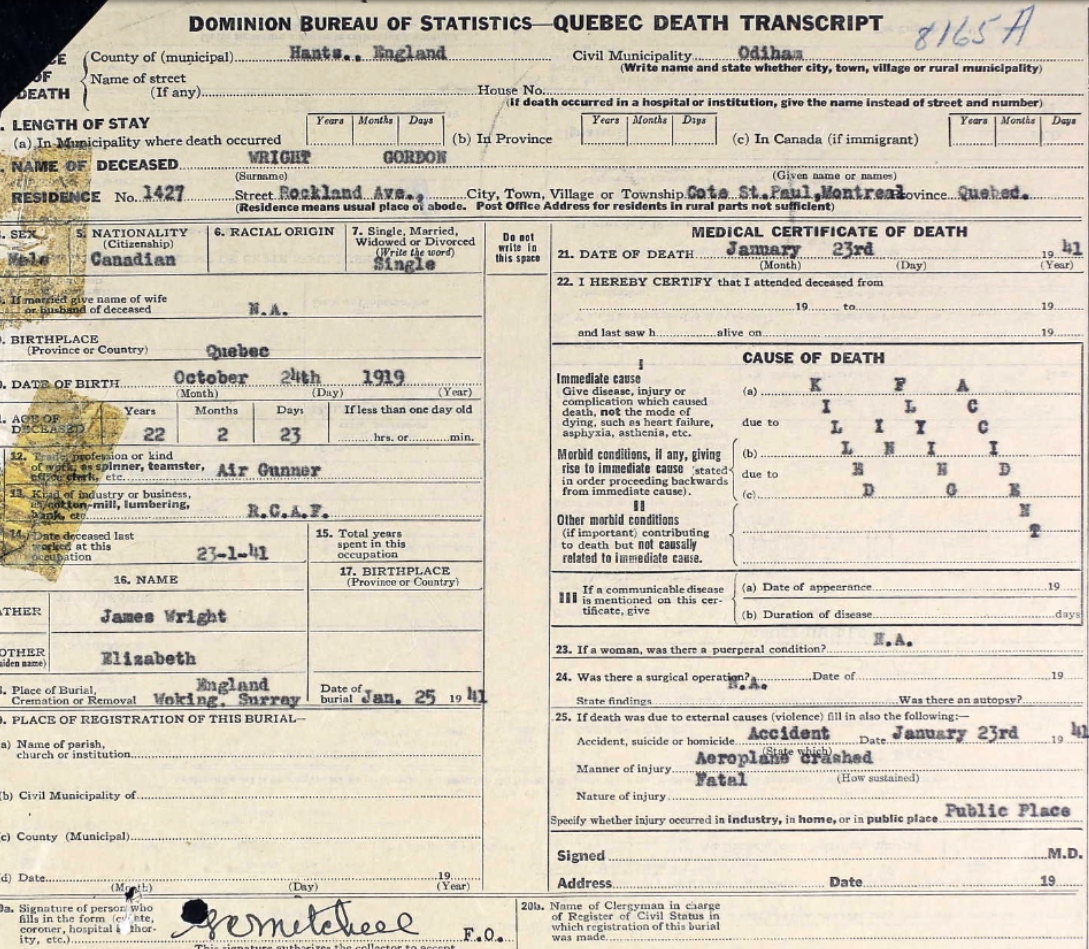 DOMINION BUREAU OF STATISTICS—QUEBEC DEATH TRANSCRIPT
8165 A
CE OF DEATH
County of (municipal) Hants., England Civil Municipality Odiham
(Write name and state whether city, town, village or rural municipality)
Name of street (If any) House No.
(If death occurred in a hospital or institution, give the name instead of street and number)
. LENGTH OF STAY
(a) In Municipality where death occurred Years Months Days (b) In Province Years Months Days (c) In Canada (if immigrant) Years Months Days
. NAME OF DECEASED WRIGHT GORDON
(Surname) (Given name or names)
RESIDENCE No. 1427 Street Rockland Ave., City, Town, Village or Township Cote St.Paul,Montreal ovince Quebec.
(Residence means usual place of abode. Post Office Address for residents in rural parts not sufficient)
. SEX
Male
5. NATIONALITY
(Citizenship)
Canadian
6. RACIAL ORIGIN
7. Single, Married,
Widowed or Divorced
(Write the word)
Single
. If married give name of wife
or husband of deceased N.A.
. BIRTHPLACE
(Province or Country) Quebec
. DATE OF BIRTH October 24th 1919
(Month) (Day) (Year)
. AGE OF
DECEASED
Years Months Days If less than one day old
22 2 23 hrs. or min.
12. Trade, profession or kind
of work, as spinner, teamster,
office clerk, etc. Air Gunner
13. Kind of industry or business,
as cotton-mill, lumbering,
bank, etc. R.C.A.F.
14. Date deceased last
worked at this
occupation 23-1-41
15. Total years
spent in this
occupation
16. NAME
17. BIRTHPLACE
(Province or Country)
ATHER James Wright
OTHER
aiden name) Elizabeth
. Place of Burial,
Cremation or Removal England
Woking. Surrey
Date of
burial Jan. 25 19 41
. PLACE OF REGISTRATION OF THIS BURIAL—
a) Name of parish,
church or institution
(b) Civil Municipality of
c) County (Municipal)
d) Date 19
(Month) (Day) (Year)
0a. Signature of person who
fills in the form (
coroner, hospital
ity, etc.) Mitchell F.O.
This signature authorizes the collector to accept
Do not
write in
this space
MEDICAL CERTIFICATE OF DEATH
21. DATE OF DEATH January 23rd 19 41
(Month) (Day) (Year)
22. I HEREBY CERTIFY that I attended deceased from
19 to 19
and last saw h alive on 19
CAUSE OF DEATH
I
Immediate cause
Give disease, injury or
complication which caused
death, not the mode of
dying, such as heart failure,
asphyxia, asthenia, etc.
Morbid conditions, if any, giving
rise to immediate cause (stated
in order proceeding backwards
from immediate cause).
II
Other morbid conditions
(if important) contributing
to death but not causally
related to immediate cause.
(a) K F A
I L C
due to L I Y C
(b) L N I I
due to E N D
(c) D G E
N
T
III If a communicable disease
is mentioned on this cer-
tificate, give
(a) Date of appearance 19
(b) Duration of disease days
23. If a woman, was there a puerperal condition? N.A.
24. Was there a surgical operation? N.A. Date of 19
State findings Was there an autopsy?
25. If death was due to external causes (violence) fill in also the following:—
Accident, suicide or homicide Accident Date January 23rd 19 41
(State which)
Manner of injury Aeroplane crashed
Fatal (How sustained)
Nature of injury
Specify whether injury occurred in industry, in home, or in public place Public Place
Signed M.D.
Address Date 19
20b. Name of Clergyman in charge
of Register of Civil Status in
which registration of this burial
was made